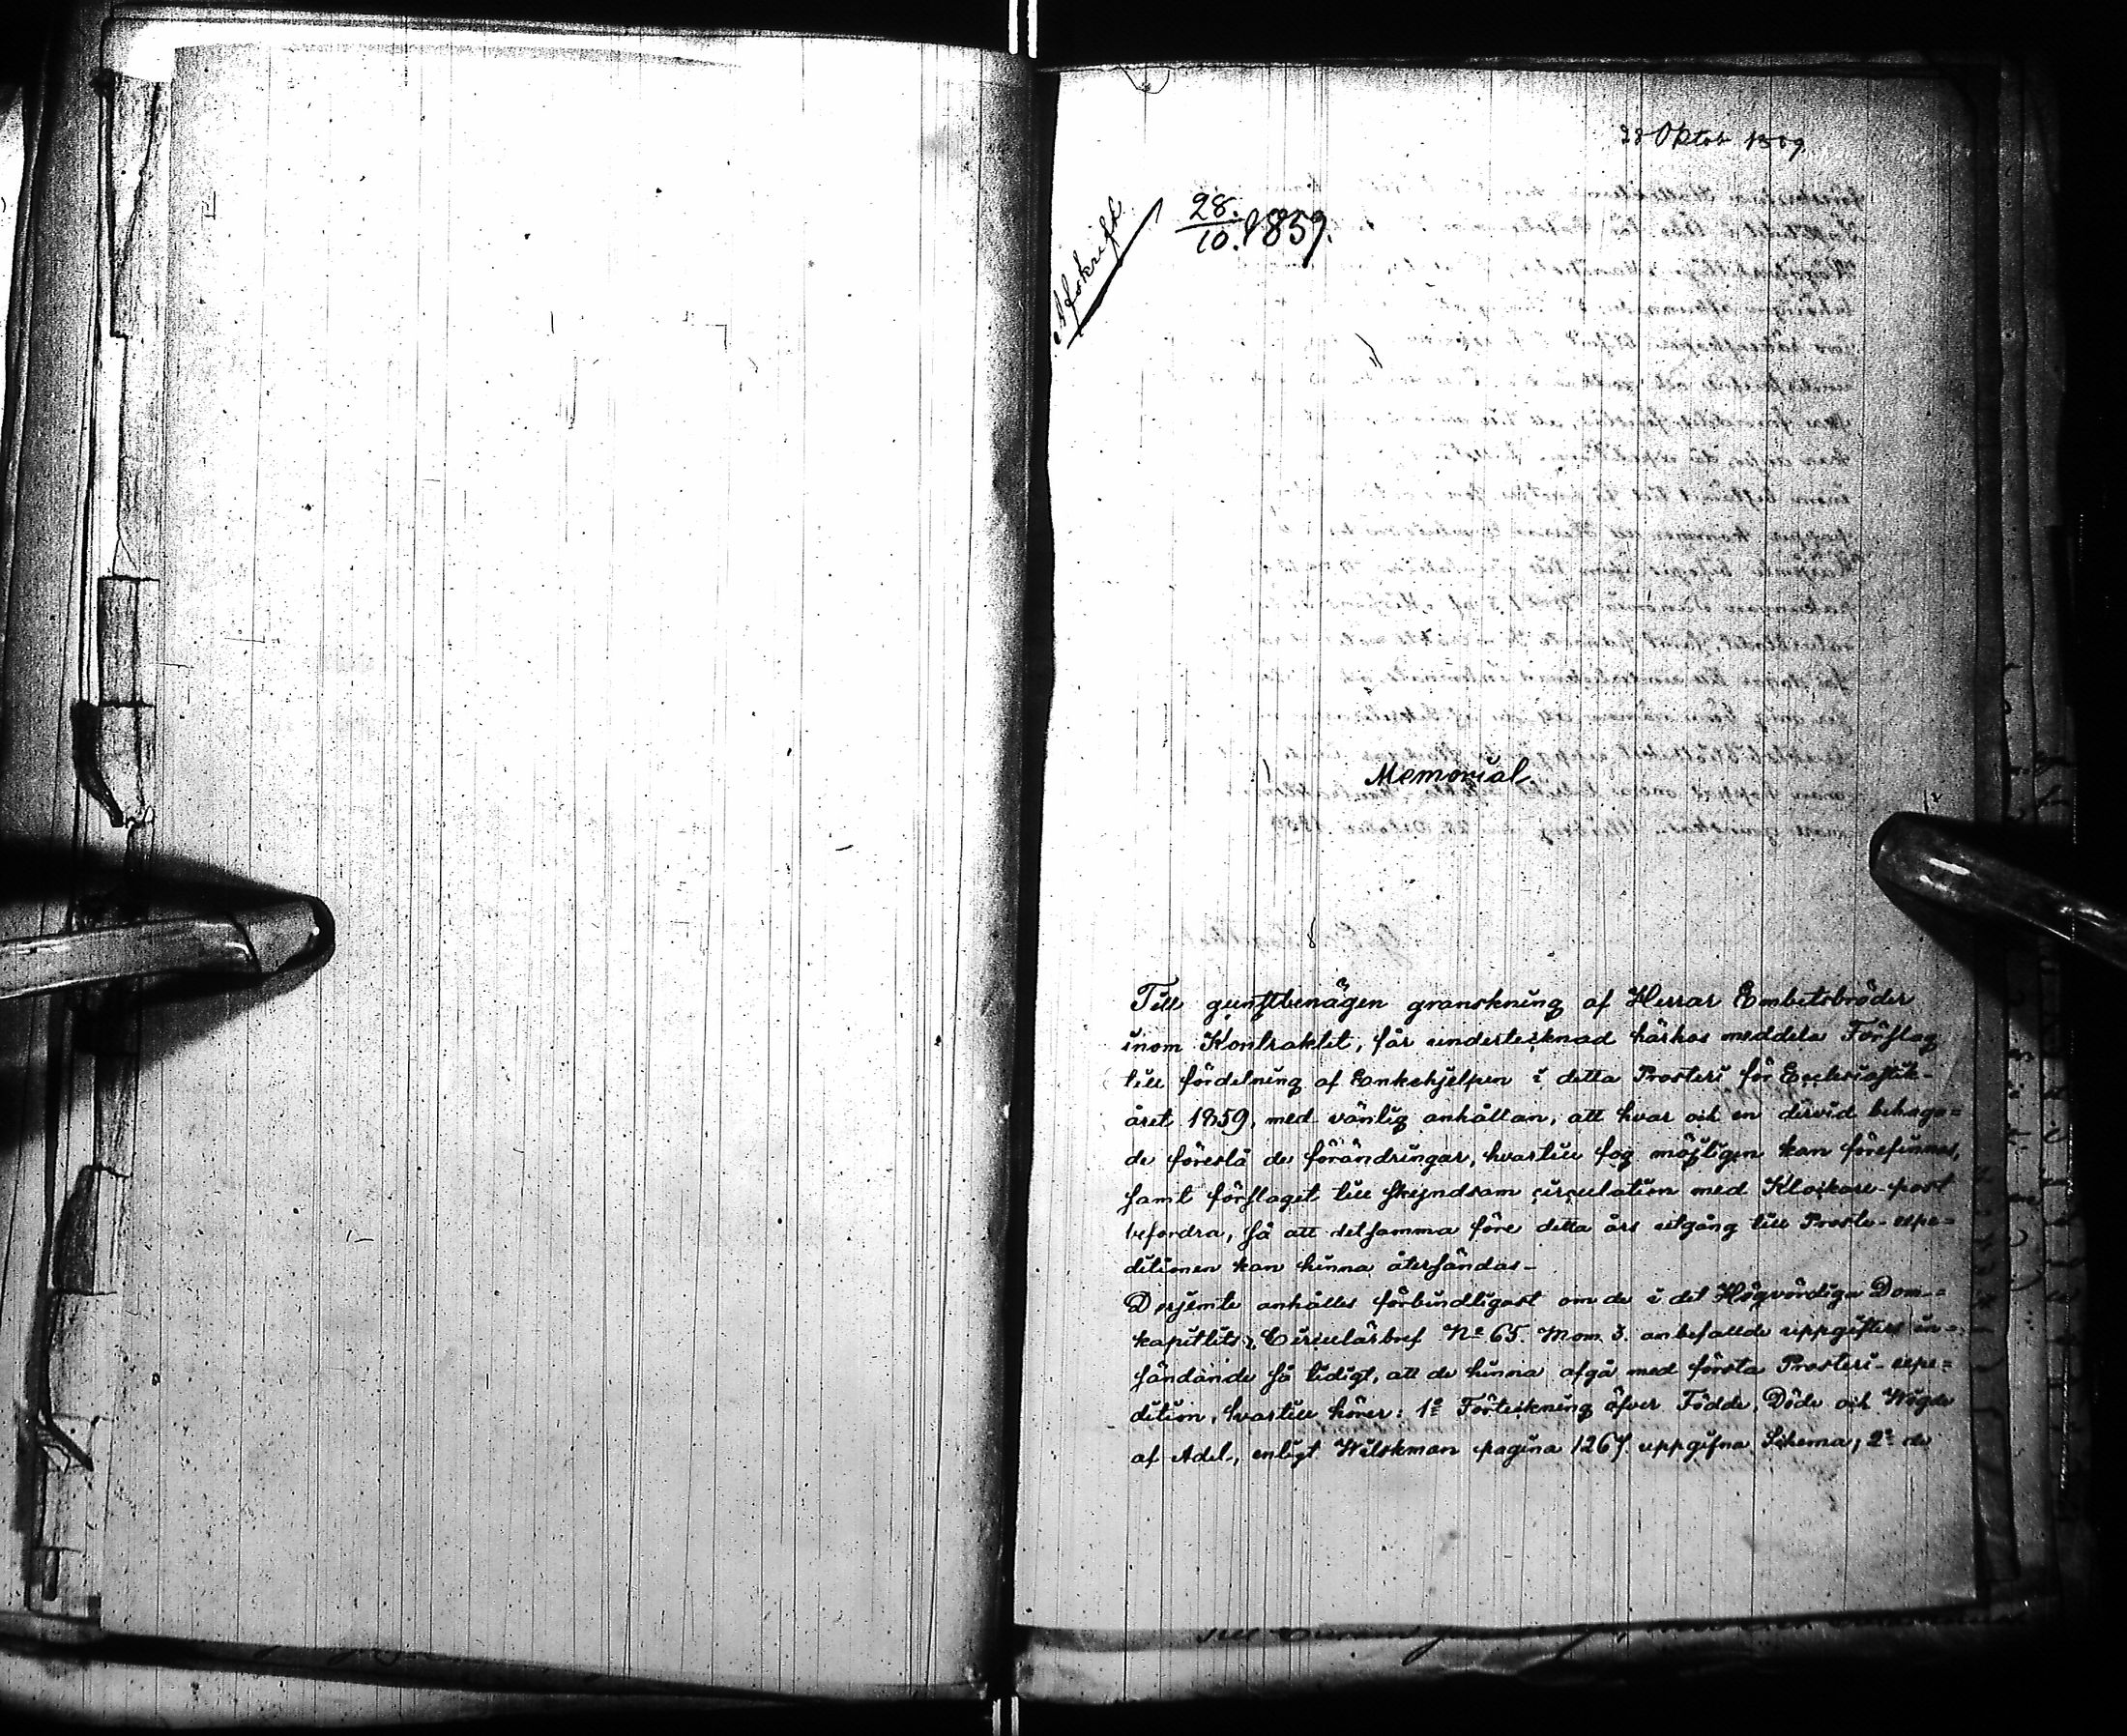 28 Oktob 1859.
Afskrift
28./10. 1859.
Memorial.
Till gunstbenägen granskning af Herrar Embetsbröder
inom Kontraktet, får undertecknad härhos meddela Förslag
till fördelning af Enkehjelpen i detta Prosteri för Ecclesiastik-
året 1859, med vänlig anhållan, att hvar och en dervid behaga=
de föreslå de förändringar, hvartill fog möjligen kan förefinnas,
samt förslaget till skyndsam circulation med Klockare-post
befordra, så att detsamma före detta års utgång till Prosteri-expe=
ditionen kan hinna återsändas-
Derjemte anhålles förbindligast om de i det Högvördiga Dom-=
kapitlets Circulärbref No 65. Mom. 3. anbefallde uppgifters in=
sändande så tidigt, att de hinna afgå med första Prosteri-expe=
dition, hvartill hörer: 1o Förteckning öfver Födde, Döde och Wigde
af Adel, enligt Wilskman pagina 1267. uppgifna Schema; 2o de